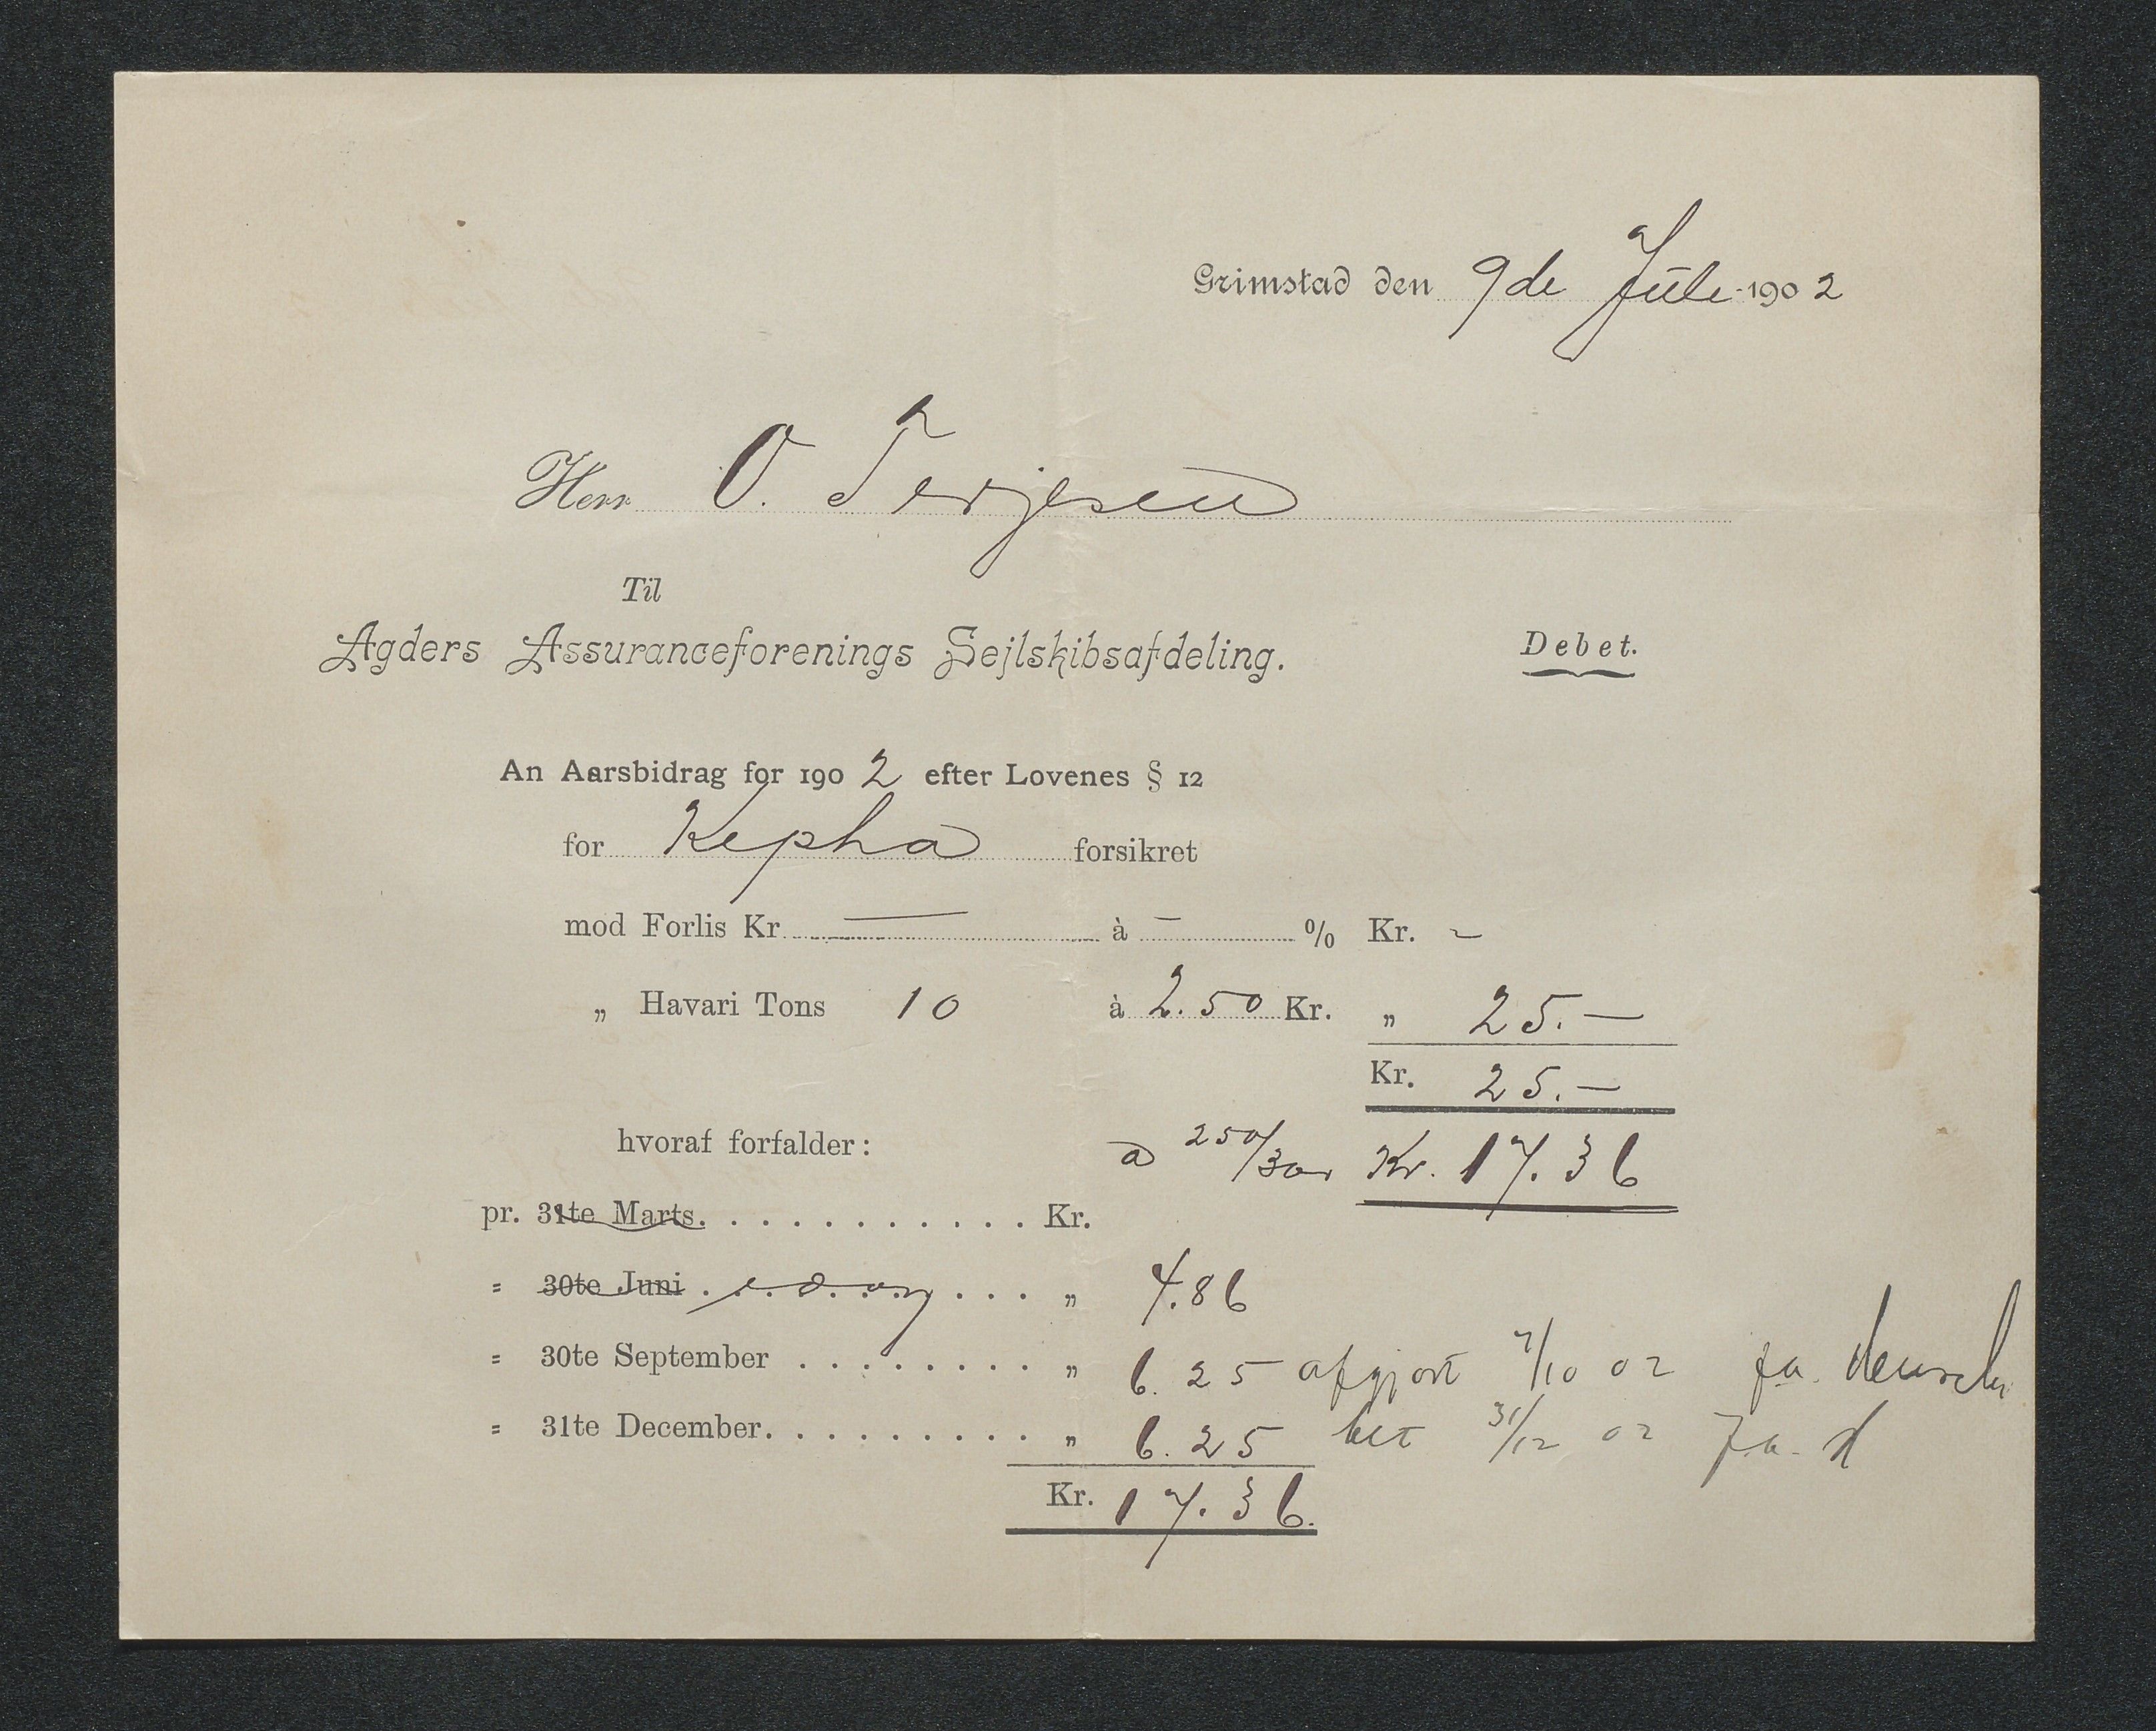 Grimstad den 9de Juli 1902
Herr O. Terjesen
Til
Agders Assuranceforenings Sejlskibsafdeling. Debet.
An Aarsbidrag for 1902 efter Lovenes § 12
for Kepha forsikret
mod Forlis Kr. — à — % Kr. -
„ Havari Tons 10 à 2.50 Kr. „ 25.—
Kr. 25.—
hvoraf forfalder: a 250/360 Kr. 17.36
pr. 31te Marts. . . . . . . . . . . . Kr.
= 30te Juni . . idag . . . „ 4.86
= 30te September . . . . . . . . „ 6.25 afgjort 7/10 02
= 31te December. . . . . . . . . „ 6.25 bet 31/12 02
Kr. 17.36.